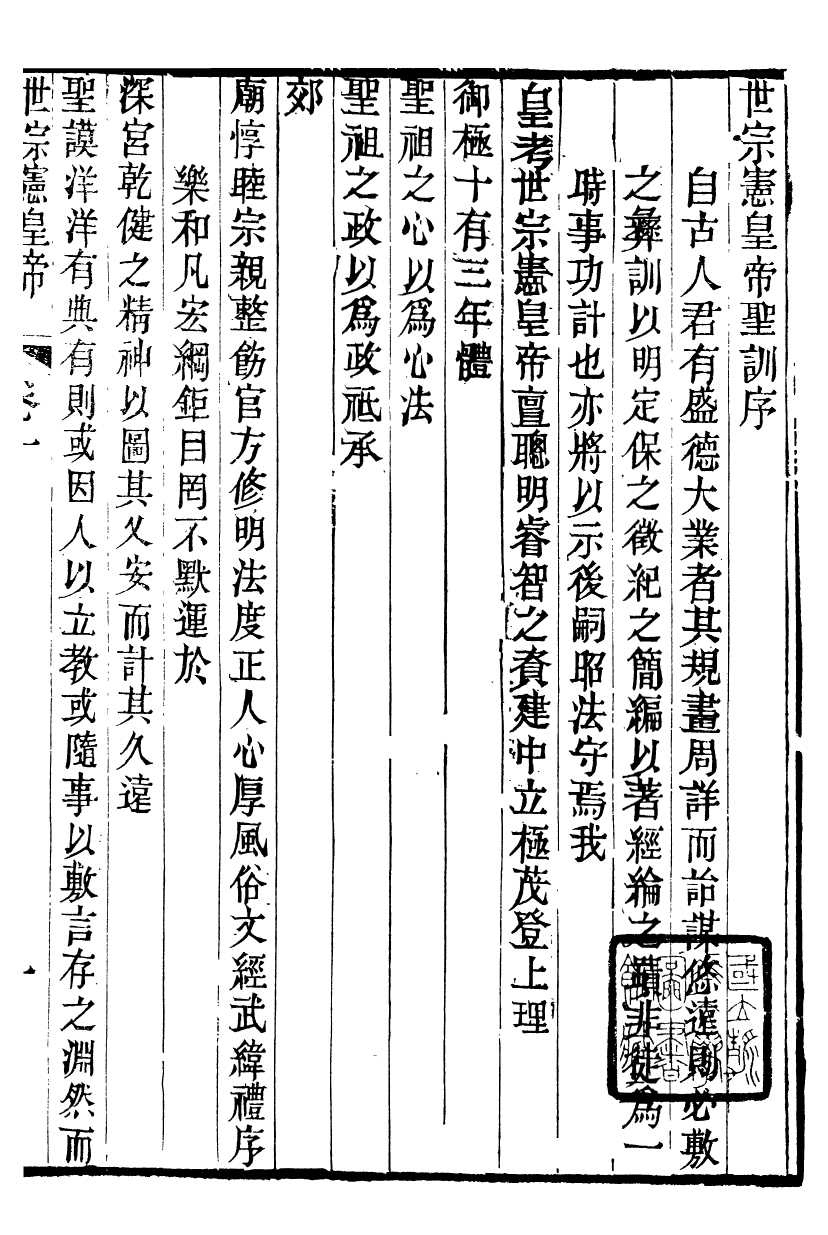 世宗憲皇帝聖訓序
自古人君有盛德大業者其規畫周詳而詒謀悠遠則必敷
之彝訓以明定保之徵紀之簡編以著經綸之蹟非徒爲一
時事功計也亦將以示後嗣昭法守焉我
皇考世宗憲皇帝亶聰明睿智之資建中立極茂登上理
御極十有三年體
聖祖之心以爲心法
聖祖之政以爲政祗承
郊
廟惇睦宗親整飭官方修明法度正人心厚風俗文經武緯禮序
樂和凡宏綱鉅目罔不默運於
深宮乾健之精神以圖其乂安而計其久遠
聖謨洋洋有典有則或因人以立教或隨事以敷言存之淵然而
世宗憲皇帝 卷一